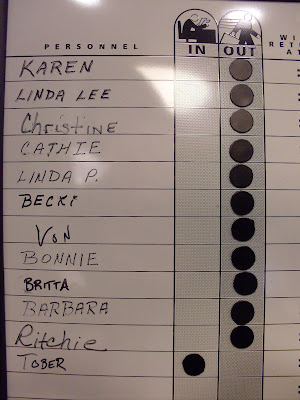 WI
RET
A
PERSONNEL IN OUT
KAREN
LINDA LEE
Christine
CATHIE
LINDA P.
BECKI
VON
BONNIE
BRITTA
BARBARA
Ritchie
TOBER